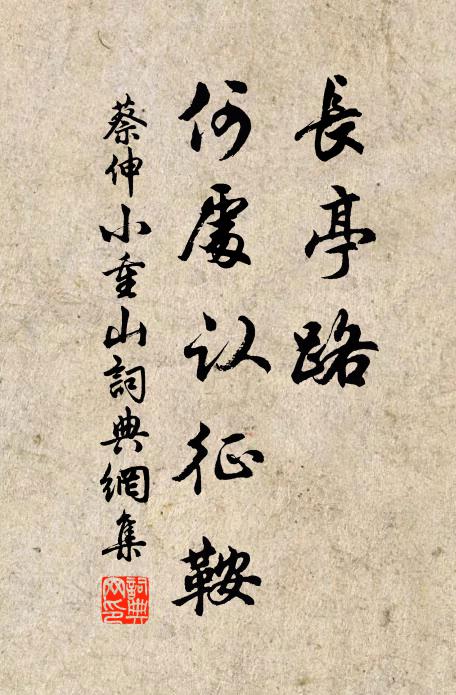 長亭路
何處認征鞍
蔡伸小重山詞典網集
詞典网印